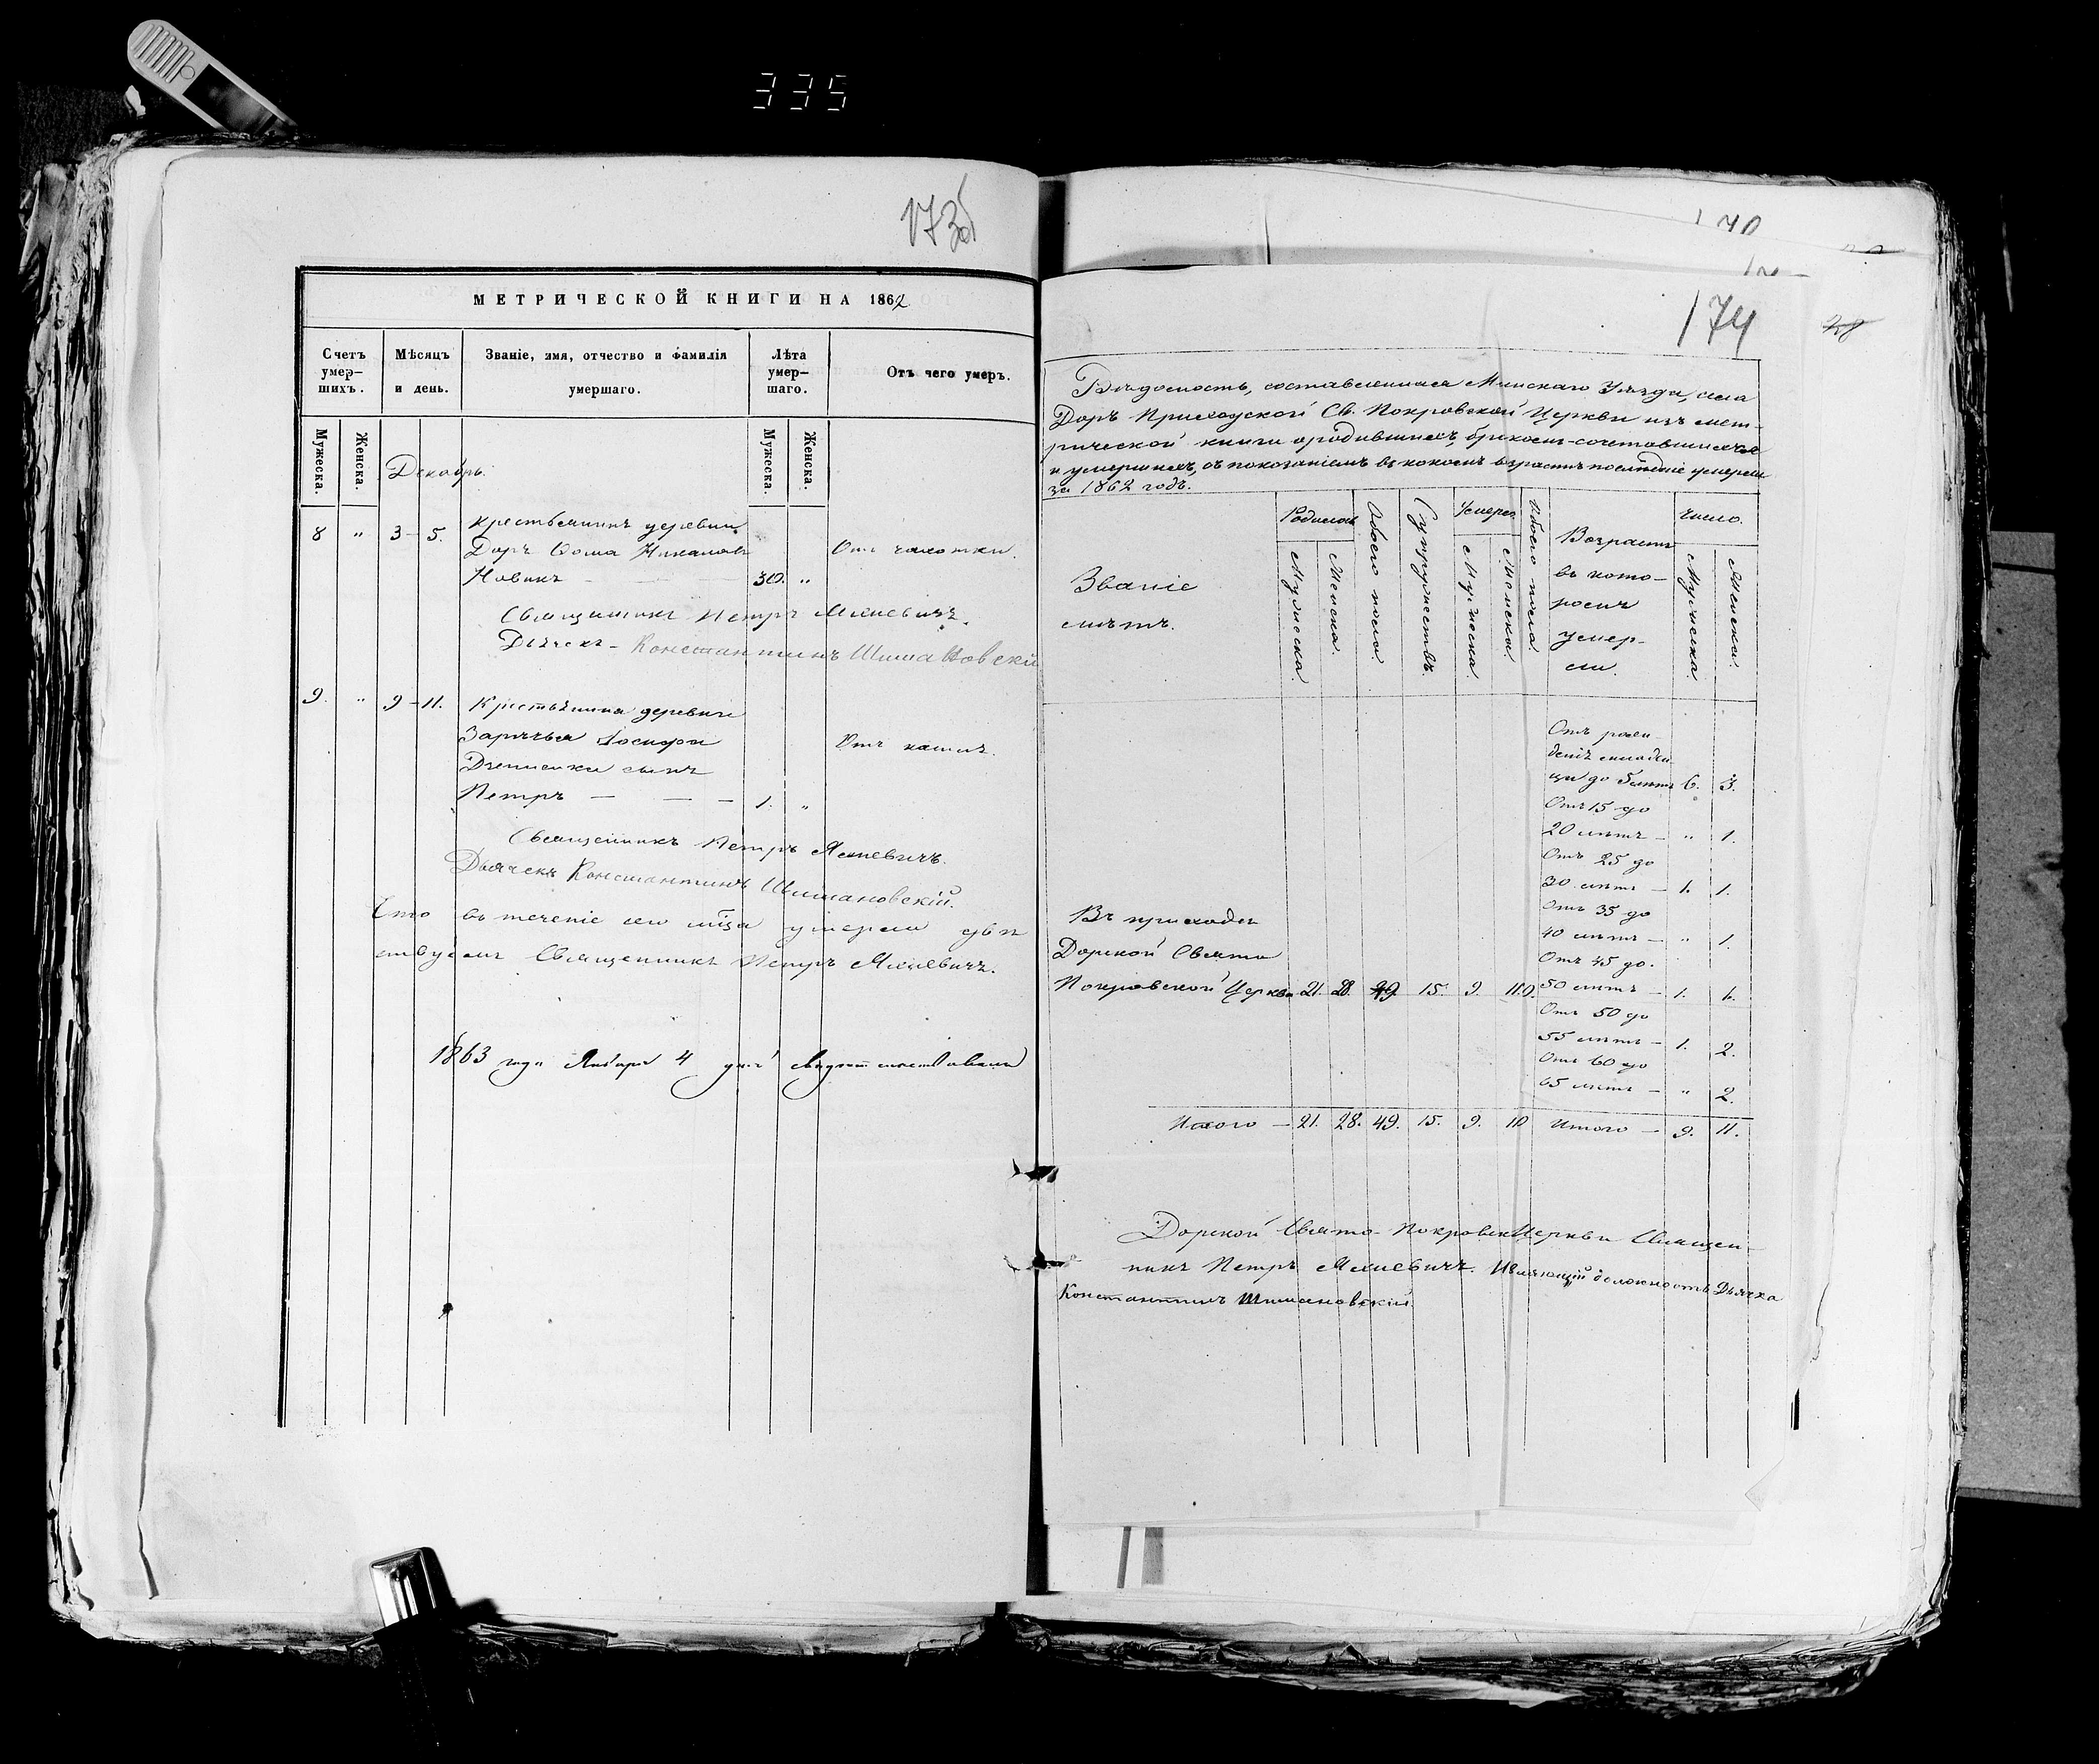 335
173об
МЕТРИЧЕСКОЙ КНИГИ НА 1862
Счетъ умер-шихъ. Мѣсяцъ и день. Званіе, имя, отчество и фамилія умершаго. Лѣта умер-шаго. Отъ чего умеръ.
Мужеска. Женска. Мужеска. Женска.
Декабрь.
8 „ 3 – 5. Крестьянинъ деревни
Доръ Ѳома Отъ чахотки.
Новикъ — 30. „
Священникъ Петръ
Дьячекъ – Константинъ Шимановскій
9. „ 9 – 11. Крестьянина деревни
Зарѣчья Іосифа Отъ кашля.
сынъ
Петръ — — — 1. „
Священникъ Петръ
Дьячекъ Константинъ Шимановскій.
Что въ теченіе сего мѣсяца умерло
Священникъ Петръ
1863 года Января 4 дня
174
28
Вѣдомость, составленная Минскаго Уѣзда, села
Доръ Приходской Св. Покровской Церкви изъ мет-
рической книги о родившихся, бракомъ-сочетавшихся
и умершихъ, съ показаніемъ въ какомъ возрастѣ послѣдніе умерли
за 1862 годъ.
Званіе мѣстъ. Родилось Мужеска. Женска. Обоего пола. Супружествъ. Умерло Мужеска. Женска. Обоего пола. Возрастъ въ кото-ромъ умер-ли. Число. Мужеска. Женска.
Отъ рож-
денія младен-
ца до 5 лѣтъ 6. 3.
Отъ 15 до
20 лѣтъ – „ 1.
Отъ 25 до
30 лѣтъ – 1. 1.
Отъ 35 до
40 лѣтъ – „ 1.
Отъ 45 до.
50 лѣтъ – 1. 1.
Отъ 50 до
55 лѣтъ – 1. 2.
Отъ 60 до
65 лѣтъ – „ 2.
Въ приходѣ
Дорской Свято
Покровской Церкви 21. 28. 49. 15. 9.
Итого – 21. 28. 49. 15. 9. 10 Итого – 9. 11.
Дорской Свято-Покровск Церкви Священ-
никъ Петръ должность Дьячка
Константинъ Шимановскій.